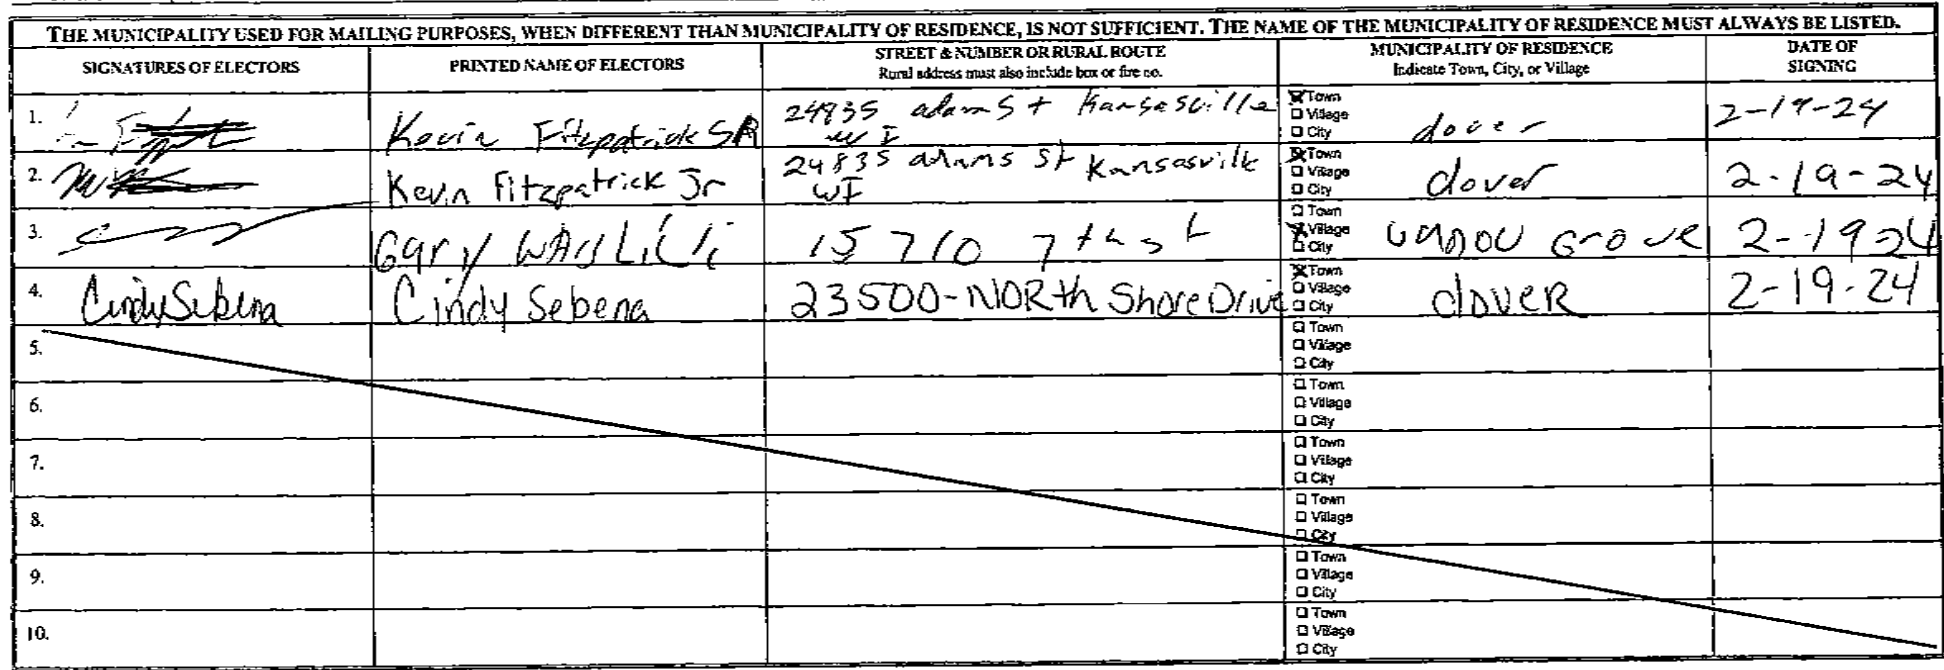 THE MUNICIPALITY USED FOR MAILING PURPOSES, WHEN DIFFERENT THAN MUNICIPALITY OF RESIDENCE, IS NOT SUFFICIENT. THE NAME OF THE MUNICIPALITY OF RESIDENCE MUST ALWAYS BE LISTED.
SIGNATURES OF ELECTORS
PRINTED NAME OF ELECTORS
STREET & NUMBER OR RURAL ROUTE
Rural address must also include box or fire no.
MUNICIPALITY OF RESIDENCE
Indicate Town, City, or Village
DATE OF
SIGNING
1.
Kevin Fitzpatrick SR
24835 adam St Kansasville
WI
Town
Village
City
dover
2-19-24
2.
Kevin Fitzpatrick Jr
24835 adams St Kansasville
WI
Town
Village
City
dover
2-19-24
3.
Gary
15710 7th st
Town
Village
City
Grove
2-19-24
4.
Cindy Sebena
Cindy Sebena
23500-NORth Shore Drive
Town
Village
City
doveR
2-19-24
5.
Town
Village
City
6.
Town
Village
City
7.
Town
Village
City
8.
Town
Village
City
9.
Town
Village
City
10.
Town
Village
City